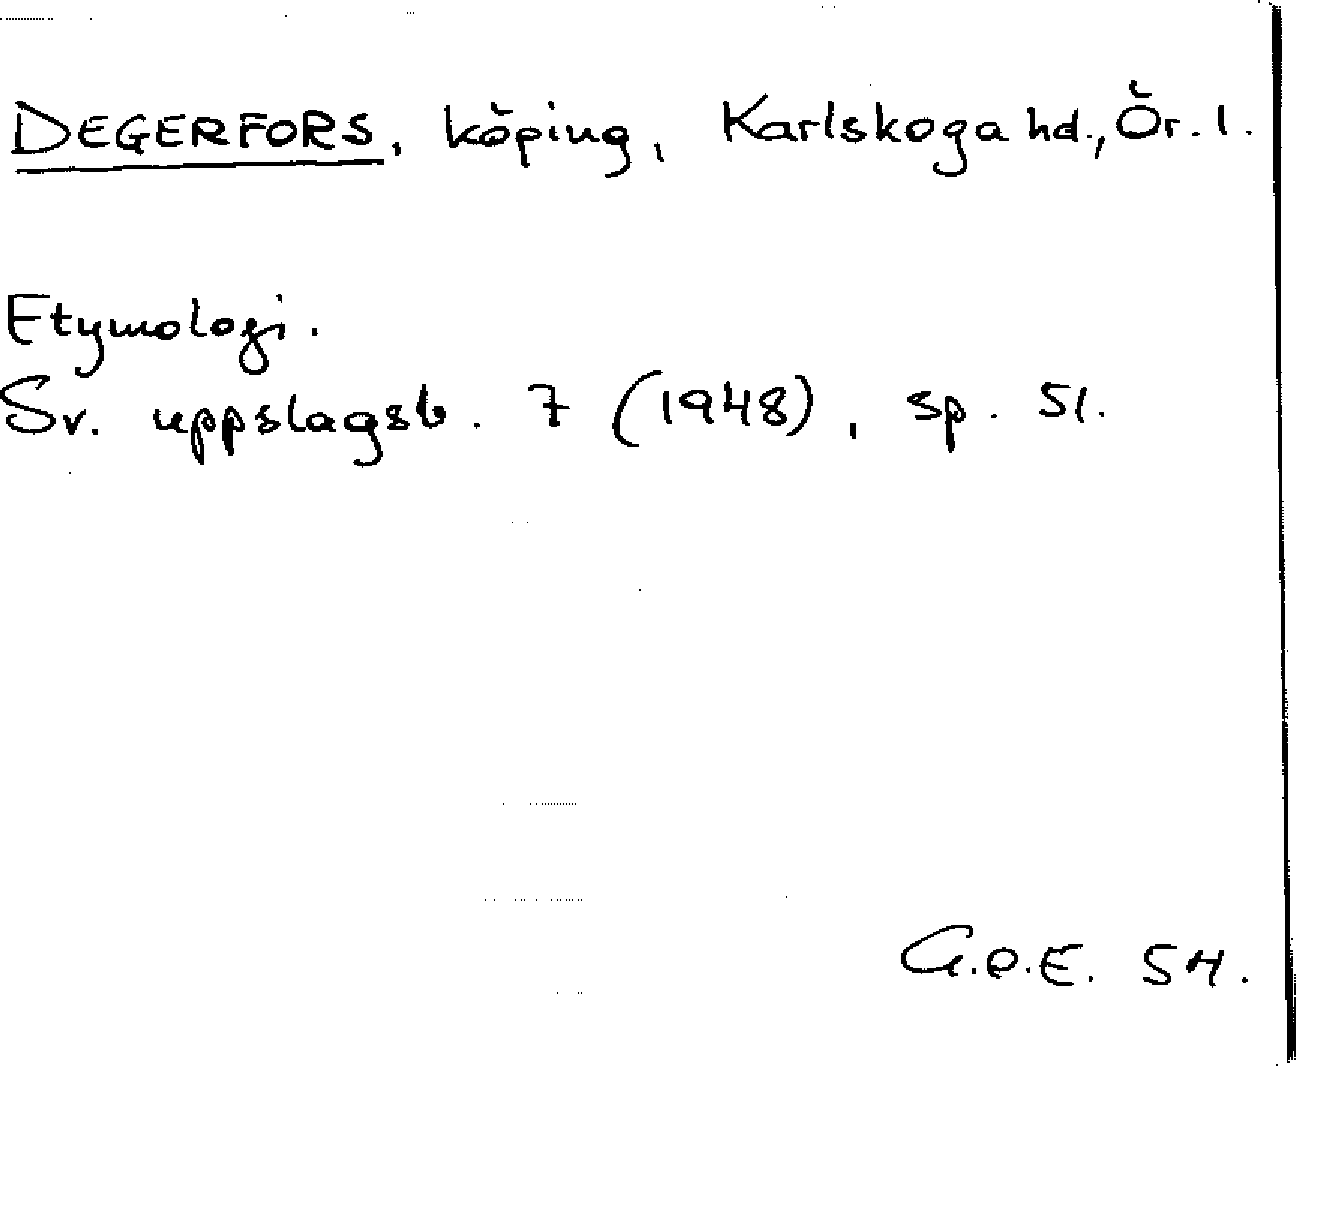 DEGERFORS, köping, Karlskoga hd., Ör. l.
Etymologi.
Sv. uppslagsb. 7 (1948), sp. 51.
G.O.E. 54.